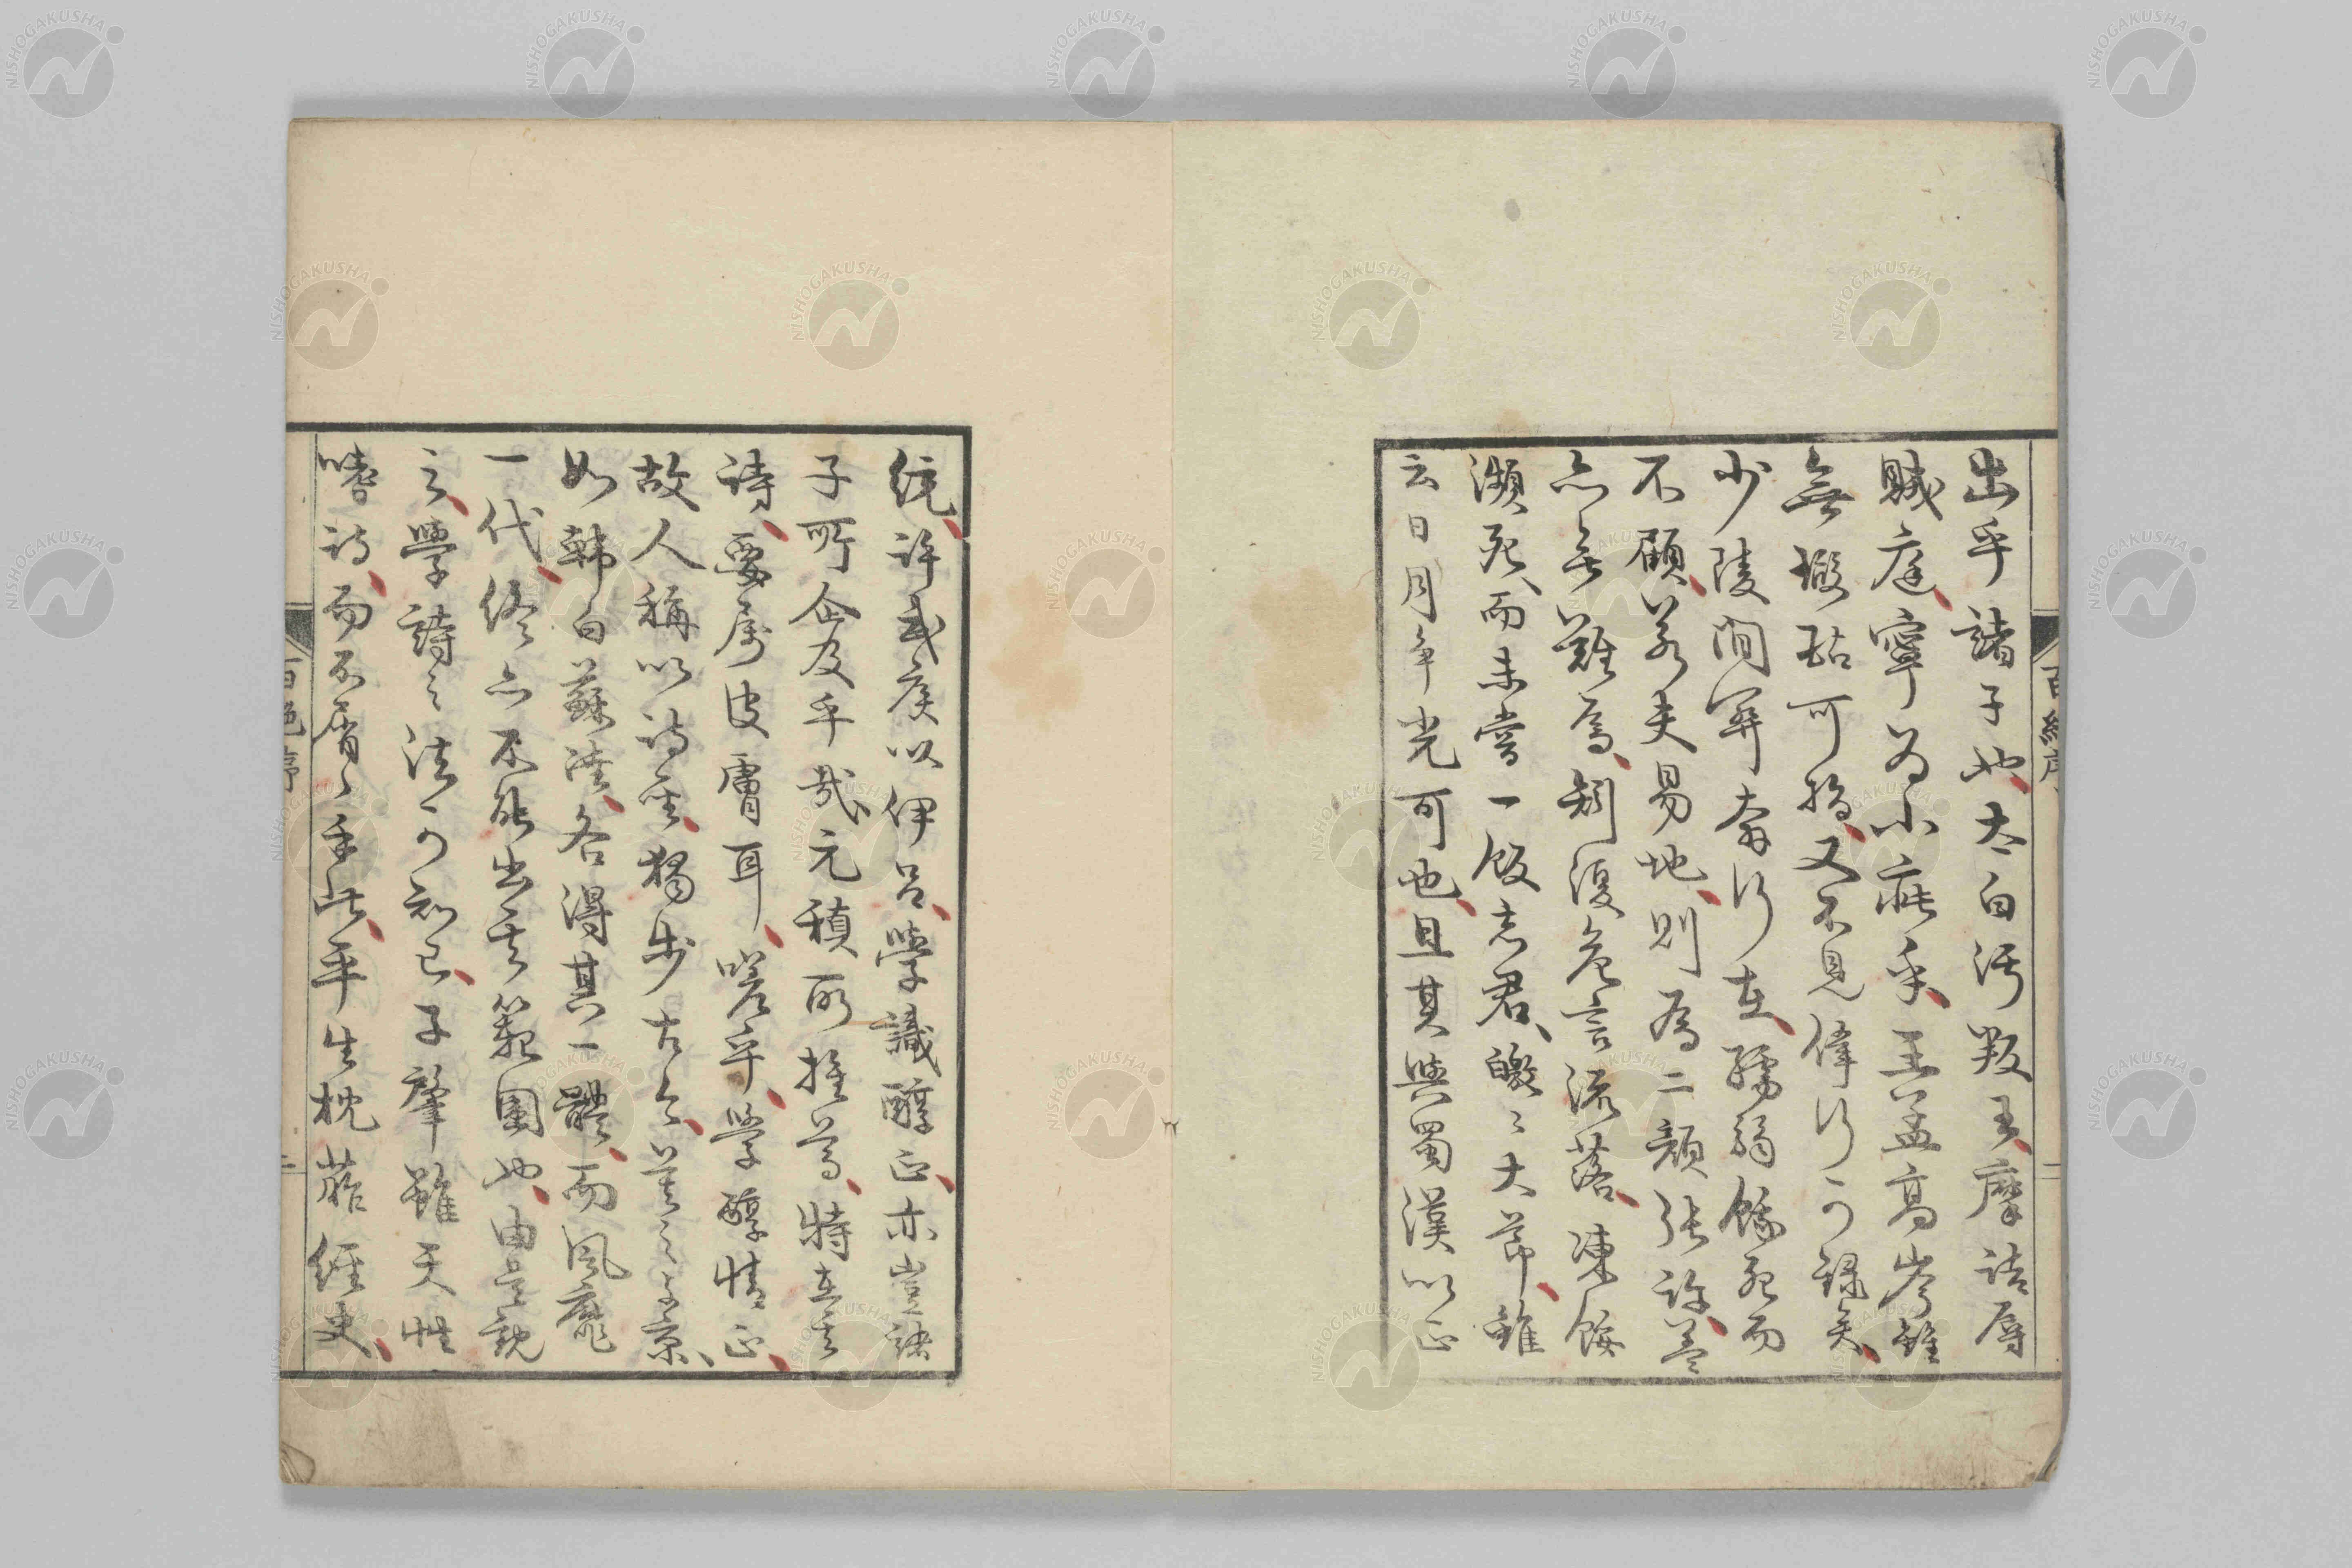 出乎諸子也太白汚叛王摩詰辱
賊庭寧為小疵乎王孟高岑雖
無瑕玷可指又不見偉行可録矣
少陵間関奔行在孱弱餓死而
不顧若夫易地則為二顔張許蓋
亦無難焉剣復危言流落凍餒
瀕死而未嘗一飯忘君皦々大節雖
云日月争光可也且其與蜀漢以正
統許武侯以伊呂學識醇正亦豈諸
子所企及乎哉元稹所推尊特在其
詩要属皮膚耳嗟乎學醇情正
故人稱以詩聖独歩古今業之之京
如韓白蘇陸各得其一體而風靡
一代終亦不能出其範圍也由是観
之學詩之法可知已子肇雖天性
嗜詩而不屑々乎此平生枕藉經史
百絶序
二
百絶序
二
NISHOGAKUSHA